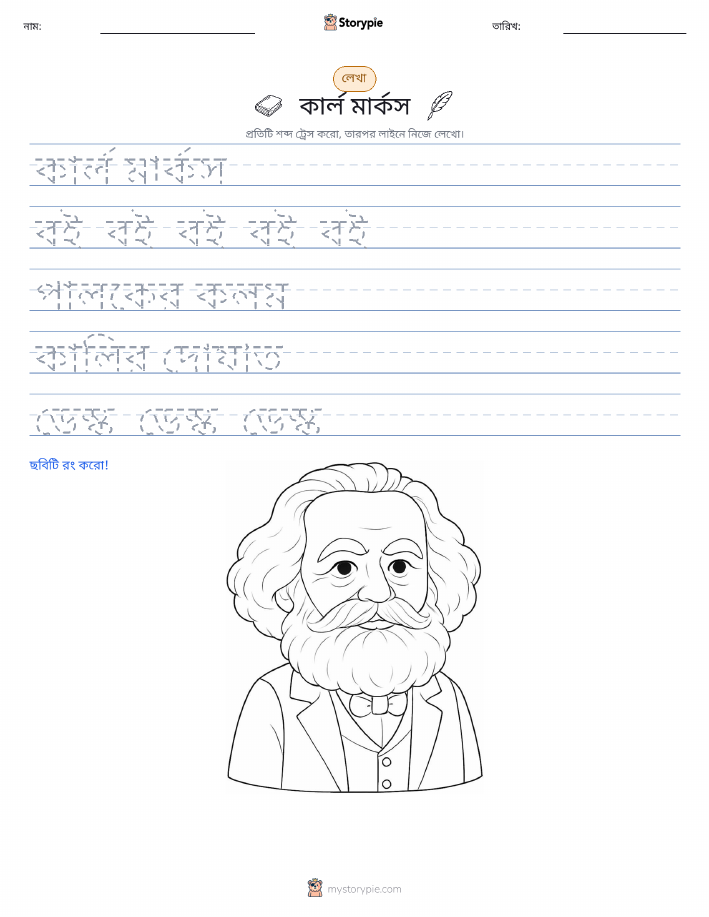 নাম:
Storypie
তারিখ:
লেখা
কার্ল মার্কস
প্রতিটি শব্দ ট্রেস করো, তারপর লাইনে নিজে লেখো।
কার্ল মার্কস
বই বই বই বই বই
পালকের কলম
কালির দোয়াত
ডেস্ক ডেস্ক ডেস্ক
ছবিটি রং করো!
mystorypie.com